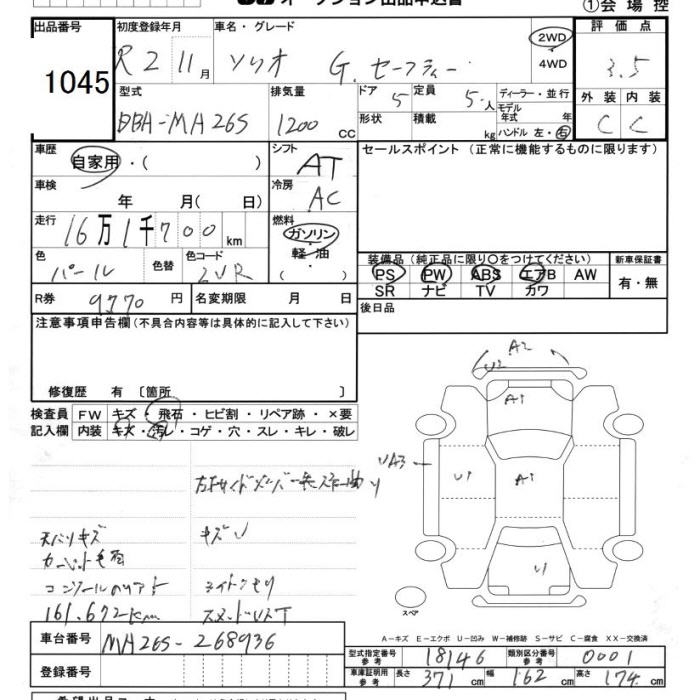 オークション出品申込書
①会場控
出品番号 1045
初度登録年月 R2 11月
車名・グレード ソリオ G. セーフティー
2WD
4WD
評価点 3.5
外装 C 内装 C
型式 DBA-MA26S
排気量 1200 cc
ドア 5 定員 5人
形状 積載 kg
ディーラー・並行
モデル年式 年
ハンドル 左・右
車歴 自家用・( )
シフト AT
セールスポイント (正常に機能するものに限ります)
車検 年 月( 日)
冷房 AC
走行 16万1千700 km
燃料 ガソリン・軽油・( )
色 パール 色替 色コード ZVR
装備品 (純正品に限り○をつけてください)
PS PW ABS エアB AW
SR ナビ TV カワ
新車保証書 有・無
R券 9770円 名変期限 月 日
後日品
注意事項申告欄(不具合内容等は具体的に記入して下さい)
修復歴 有 〔箇所 〕
検査員記入欄
FW キズ・飛石・ヒビ割・リペア跡・×要
内装 キズ・汚レ・コゲ・穴・スレ・キレ・破レ
A2
U2
A1
UA3
U1
A1
U1
天バリキズ キズU
161,672km
スペア
A-キズ E-エクボ U-凹み W-補修跡 S-サビ C-腐食 XX-交換済
車台番号 MA26S-268936
登録番号
型式指定番号 参考 18146 類別区分番号 参考 0001
車庫証明用 参考 長さ 371cm 幅 162cm 高さ 174cm